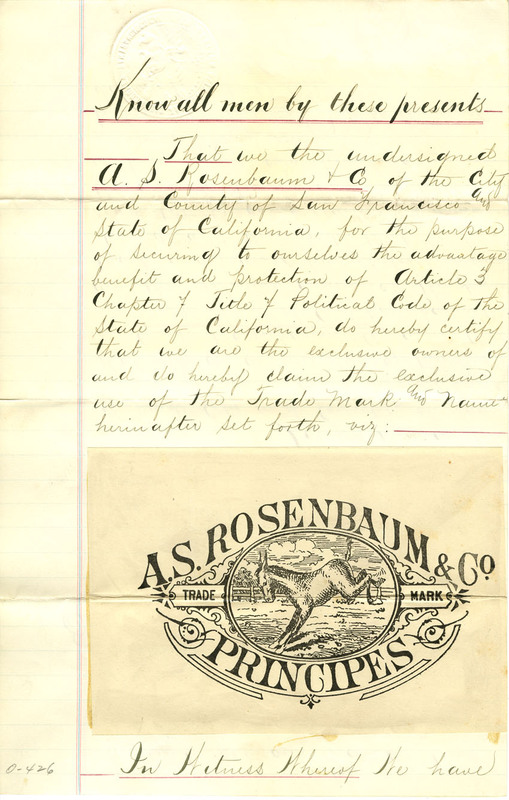 Know all men by these presents
That we the undersigned
A. S. Rosenbaum & Co of the City
and County of San Francisco and
State of California, for the purpose
of securing to ourselves the advantage
benefit and protection of Article 3
Chapter 7 Title 7 Political Code, of the
State of California, do hereby certify
that we are the exclusive owners of
and do hereby claim the exclusive
use of the Trade Mark and Name
herinafter set forth, viz:
A.S. ROSENBAUM & Co
TRADE MARK
PRINCIPES
In Witness Whereof We have
0-426